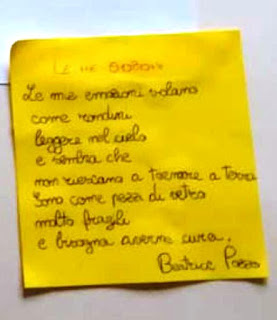 LE MIE
Le mie emozioni volano
come rondini
leggere nel cielo
e sembra che
non riescano a tornare a terra
Sono come pezzi di vetro
molto fragili
e bisogna averne cura.
Beatrice